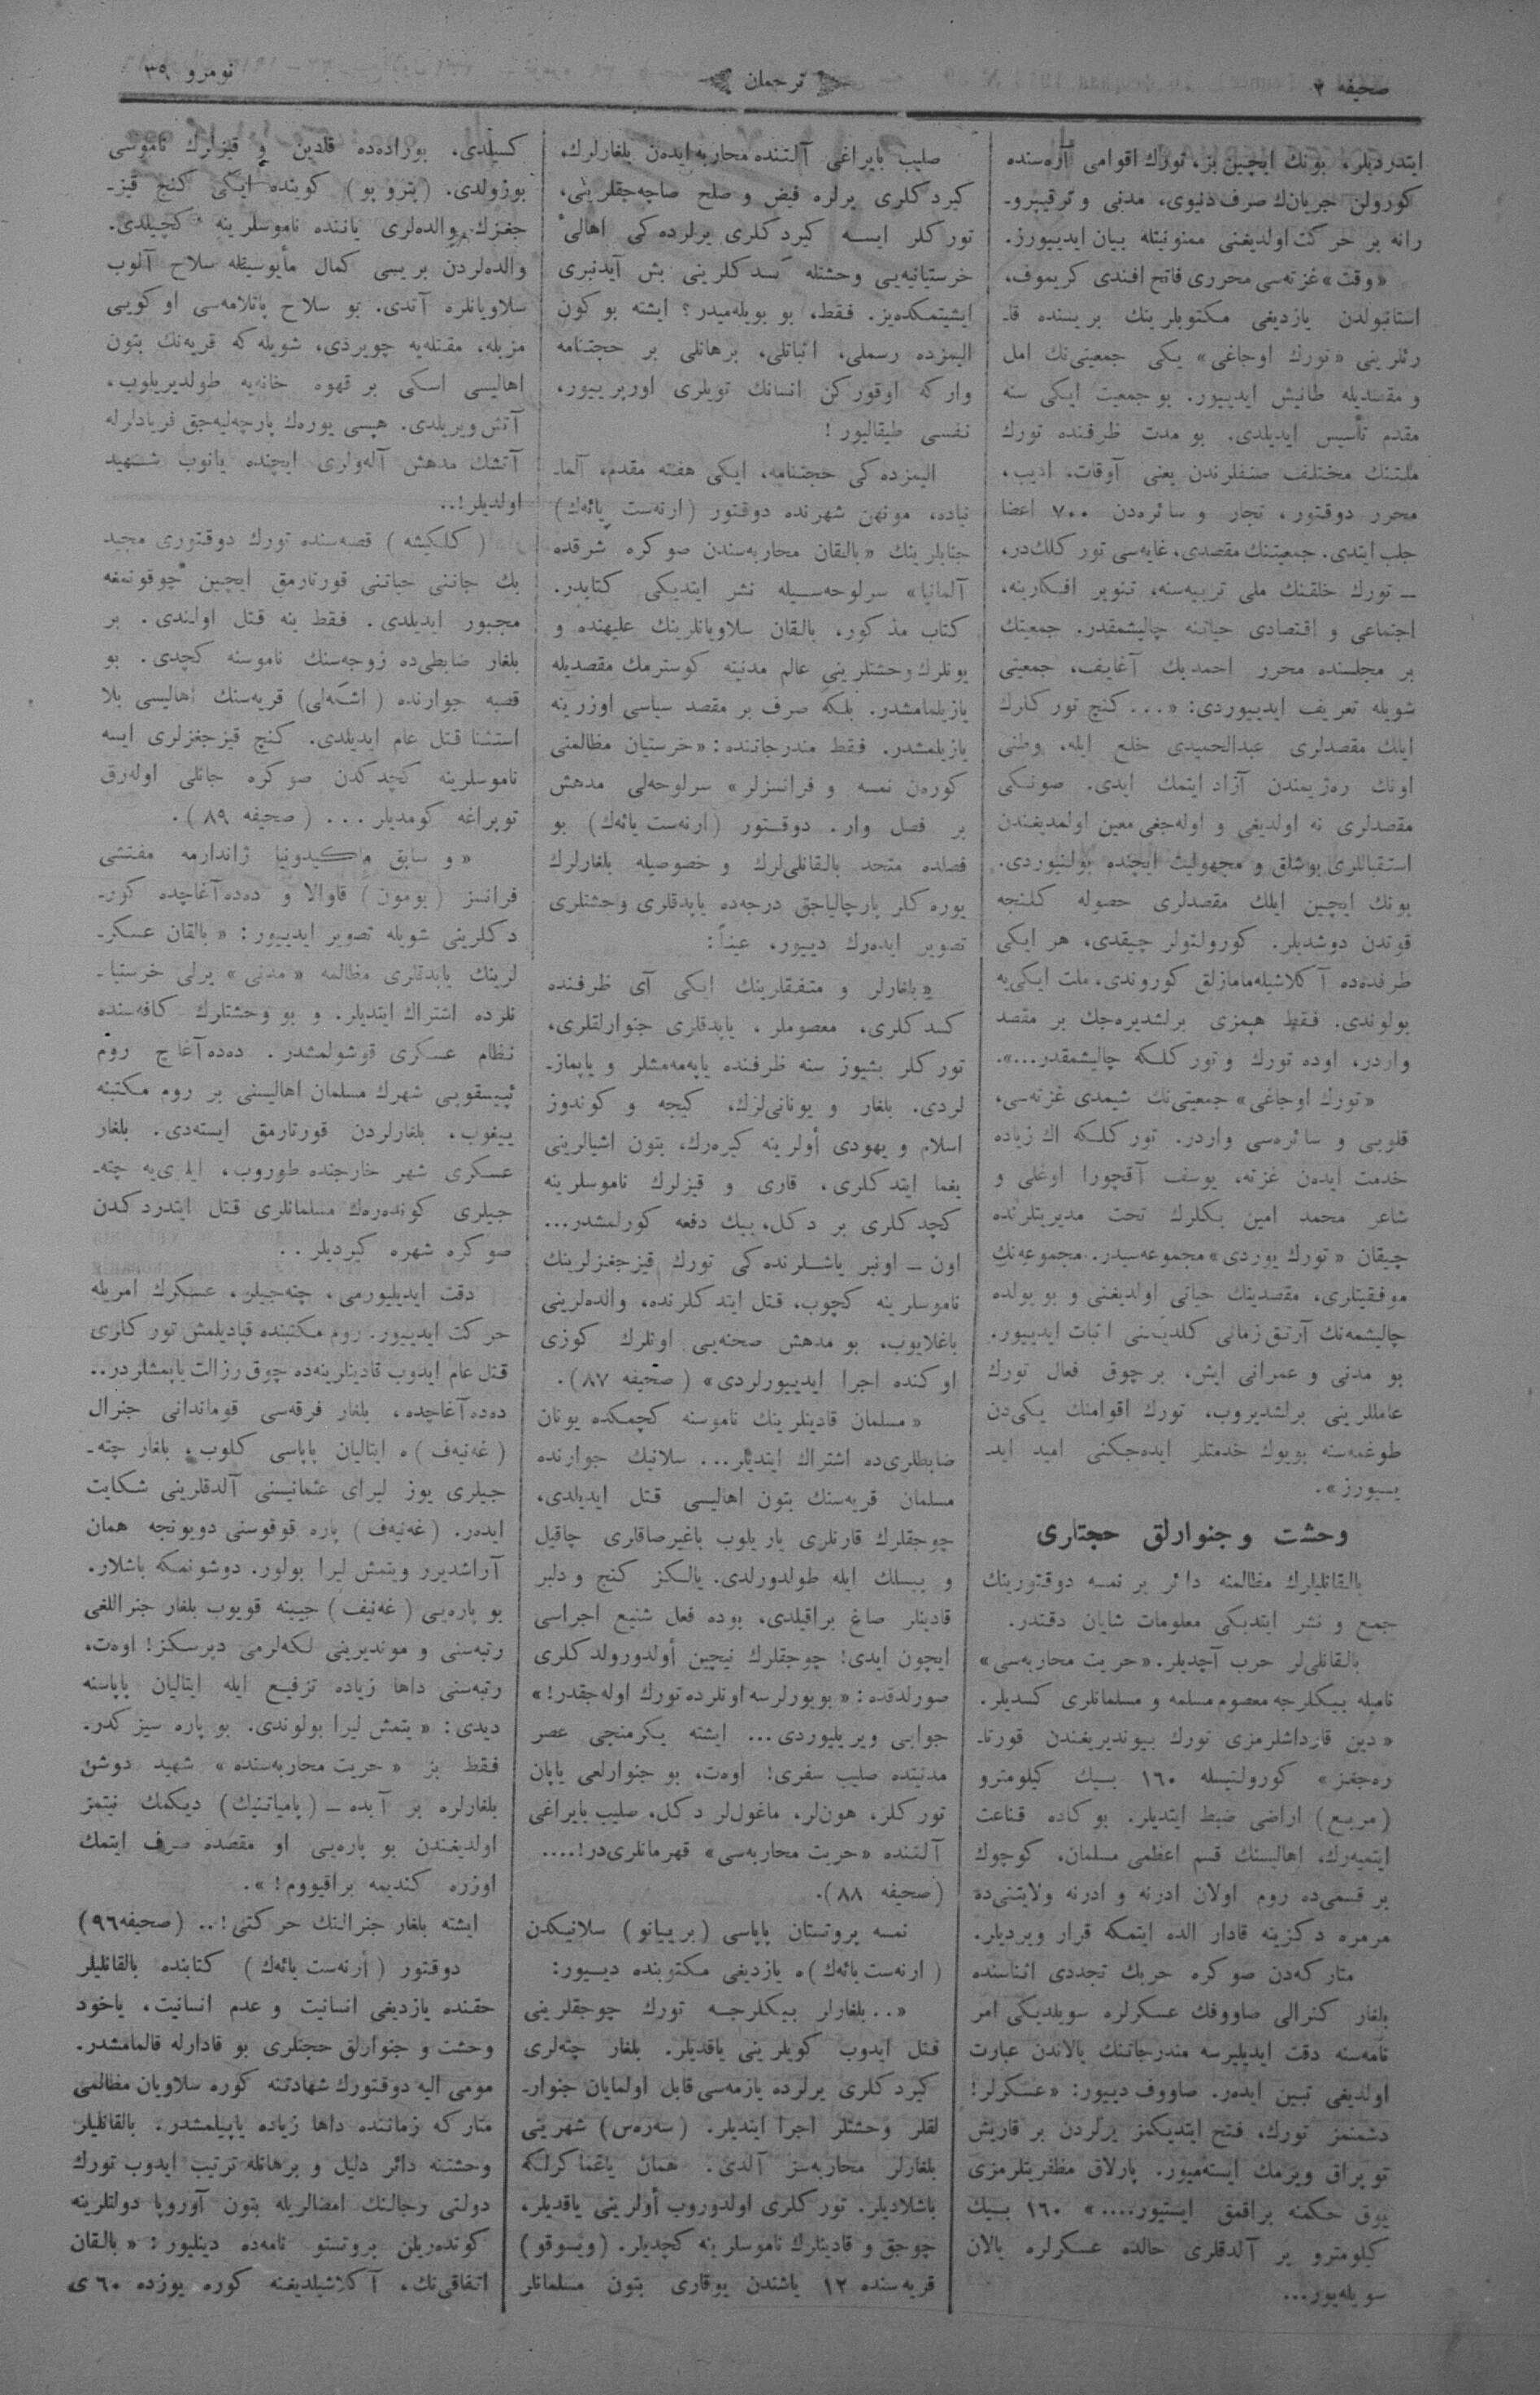 صحیفه ۲
ترجمان
نومرو ۳۵
ایتدردیلر، بونك ایچین بز، تورك اقوامی آره‌سنده
كورولن جریان‌ك صرف دنیوی، مدنی و ترقیپرو-
رانه بر حركت اولدیغنی ممنونیتله بیان ایدییورز.
«وقت» غزته‌سی محرری فاتح افندی كریموف،
استانبولدن یازدیغی مكتوبلرینك بریسنده قا-
رئلرینی «تورك اوجاغی» یكی جمعیتی‌نك امل
و مقصدیله طانیش ایدییور. بو جمعیت ایكی سنه
مقدم تأسیس ایدیلدی. بو مدت ظرفنده تورك
ملتنك مختلف صنفلرندن یعنی آوقات، ادیب،
محرر دوقتور، تجار و سائره‌دن ۷۰۰ اعضا
جلب ایتدی. جمعیتنك مقصدی، غایه‌سی توركلك‌در،
— تورك خلقنك ملی تربیه‌سنه، تنویر افكارینه،
اجتماعی و اقتصادی حیاتنه چالیشمقدر. جمعیتك
بر مجلسنده محرر احمدبك آغایف، جمعیتی
شویله تعریف ایدییوردی: «... كنج توركلرك
ایلك مقصدلری عبدالحمیدی خلع ایله، وطنی
اونك ره‌ژیمندن آزاد ایتمك ایدی. صونكی
مقصدلری نه اولدیغی و اوله‌جغی معین اولمدیغندن
استقباللری بوشلق و مجهولیت ایچنده بولنیوردی.
بونك ایچین ایلك مقصدلری حصوله كلنجه
قوتدن دوشدیلر. كورولتولر چیقدی، هر ایكی
طرفده‌ده آكلاشیله‌مامازلق كوروندی، ملت ایكی‌یه
بولوندی. فقط هپمزی برلشدیره‌جك بر مقصد
واردر، اوده تورك و توركلكه چالیشمقدر...».
«تورك اوجاغی» جمعیتی‌نك شیمدی غزته‌سی،
قلوبی و سائره‌سی واردر. توركلكه اك زیاده
خدمت ایده‌ن غزته، یوسف آقچورا اوغلی و
شاعر محمد امین بكلرك تحت مدیریتلرنده
چیقان «تورك یوردی» مجموعه‌سیدر. مجموعه‌نك
موفقیتلری، مقصدینك حیاتی اولدیغنی و بو یولده
چالیشمه‌نك آرتق زمانی كلدیكنی اثبات ایدییور.
بو مدنی و عمرانی ایش، بر چوق فعال تورك
عامللرینی برلشدیروب، تورك اقوامنك یكی‌دن
طوغمه‌سنه بویوك خدمتلر ایده‌جكنی امید اید-
ییورز».
وحشت و جنوارلق حجتلری
بالقانلیلرك مظالمنه دائر بر نمسه دوقتورینك
جمع و نشر ایتدیكی معلومات شایان دقتدر.
بالقانلی‌لر حرب آچدیلر. «حریت محاربه‌سی»
نامیله بیكلرجه معصوم مسلمه و مسلمانلری كسدیلر.
«دین قارداشلرمزی تورك بیوندیریغندن قورتا-
ره‌جغز» كورولتیسله ۱٦۰ بیك كیلومترو
(مربع) اراضی ضبط ایتدیلر. بوكاده قناعت
ایتمیه‌رك، اهالیسنك قسم اعظمی مسلمان، كوچوك
بر قسمی‌ده روم اولان ادرنه و ادرنه ولایتنی‌ده
مرمره دكزینه قادار الده ایتمكه قرار ویردیلر.
متاركه‌دن صوكره حربك تجددی اثناسنده
بلغار كنرالی صاووفك عسكرلره سویلدیكی امر
نامه‌سنه دقت ایدیلیرسه مندرجاتنك یالاندن عبارت
اولدیغی تبین ایده‌ر. صاووف دییور: «عسكرلر!
دشمنمز تورك، فتح ایتدیكمز یرلردن بر قاریش
توپراق ویرمك ایسته‌میور. پارلاق مظفریتلرمزی
یوق حكمنه براقمق ایستیور....» ۱٦۰ بیك
كیلومترو یر آلدقلری حالده عسكرلره یالان
سویله‌یور...
صلیب بایراغی آلتنده محاربه ایده‌ن بلغارلرك،
كیردكلری یرلره فیض و صلح صاچه‌جقلرینی،
توركلر ایسه كیردكلری یرلرده‌كی اهالی‌ٔ
خرستیانیه‌یی وحشتله كسدكلرینی بش آیدنبری
ایشیتمكده‌یز. فقط، بو بویله‌میدر؟ ایشته بوكون
الیمزده رسملی، اثباتلی، برهانلی بر حجتنامه
واركه اوقوركن انسانك تویلری اورپرییور،
نفسی طیقالیور!
الیمزده‌كی حجتنامه، ایكی هفته مقدم، آلما-
نیاده، مونهن شهرنده دوقتور (ارنه‌ست یائه‌ك)
جنابلرینك «بالقان محاربه‌سندن صوكره شرقده
آلمانیا» سرلوحه‌سیله نشر ایتدیكی كتابدر.
كتاب مذكور، بالقان سلاویانلرینك علیهنده و
بونلرك وحشتلرینی عالم مدنیته كوسترمك مقصدیله
یازیلمامشدر. بلكه صرف بر مقصد سیاسی اوزرینه
یازیلمشدر. فقط مندرجاتنده: «خرستیان مظالمنی
كوره‌ن نمسه و فرانسزلر» سرلوحه‌لی مدهش
بر فصل وار. دوقتور (ارنه‌ست یائه‌ك) بو
فصلده متحد بالقانلی‌لرك و خصوصیله بلغارلرك
یوره‌كلر پارچالیاجق درجه‌ده یاپدقلری وحشتلری
تصویر ایده‌رك دییور، عیناً:
«بلغارلر و متفقلرینك ایكی آی ظرفنده
كسدكلری، معصوملر، یاپدقلری جنوارلقلری،
توركلر بشیوز سنه ظرفنده یاپه‌مه‌مشلر و یاپماز-
لردی. بلغار و یونانی‌لرك، كیجه و كوندوز
اسلام و یهودی أولرینه كیره‌رك، بتون اشیالرینی
یغما ایتدكلری، قاری و قیزلرك ناموسلرینه
كچدكلری بر دكل، بیك دفعه كورلمشدر...
اون — اونبر یاشلرنده‌كی تورك قیزجغزلرینك
ناموسلرینه كچوب، قتل ایتدكلرنده، والده‌لرینی
باغلایوب، بو مدهش صحنه‌یی اونلرك كوزی
اوكنده اجرا ایدییورلردی» (صحیفه ۸۷).
«مسلمان قادینلرینك ناموسنه كچمكده یونان
ضابطلری‌ده اشتراك ایتدیلر... سلانیك جوارنده
مسلمان قریه‌سنك بتون اهالیسی قتل ایدیلدی،
چوجقلرك قارنلری یاریلوب باغیرصاقلری چاقیل
و پیسلك ایله طولدورلدی. یالكز كنج و دلبر
قادینلر صاغ براقیلدی، بوده فعل شنیع اجراسی
ایچون ایدی! چوجقلرك نیچین أولدورولدكلری
صورلدقده: «بو یورلرسه اونلرده تورك اوله‌جقدر!»
جوابی ویریلیوردی... ایشته یكرمنجی عصر
مدنیتده صلیب سفری! اوه‌ت، بو جنوارلغی یاپان
توركلر، هون‌لر، ماغول‌لر دكل، صلیب بایراغی
آلتنده «حریت محاربه‌سی» قهرمانلری‌در!....
(صحیفه ۸۸).
نمسه پروتستان پاپاسی (بریپیانو) سلانیكدن
(ارنه‌ست یائه‌ك)ه یازدیغی مكتوبنده دییور:
«.. بلغارلر بیكلرجه تورك چوجقلرینی
قتل ایدوب كویلرینی یاقدیلر. بلغار چته‌لری
كیردكلری یرلرده یازمه‌سی قابل اولمایان جنوار-
لقلر وحشتلر اجرا ایتدیلر. (سه‌ره‌س) شهرینی
بلغارلر محاربه‌سز آلدی. همان یاغماكرلكه
باشلادیلر. توركلری اولدوروب أولرینی یاقدیلر،
چوجق و قادینلرك ناموسلرینه كچدیلر. (ویسوقو)
قریه‌سنده ۱۲ یاشندن یوقاری بتون مسلمانلر
كسیلدی. بوراده‌ده قادین و قیزلرك ناموسی
بوزولدی. (پتروپو) كوینده ایكی كنج قیز-
جغزك والده‌لری یاننده ناموسلرینه كچیلدی.
والده‌لردن بریسی كمال مأیوسیتله سلاح آلوب
سلاویانلره آتدی. بو سلاح پاتلامه‌سی او كویی
مزبله، مقتله‌یه چویردی، شویله‌كه قریه‌نك بتون
اهالیسی اسكی بر قهوه خانه‌یه طولدیریلوب،
آتش ویریلدی. هپسی یوره‌ك پارچه‌لیه‌جق فریادلرله
آتشك مدهش آله‌ولری ایچنده یانوب شهید
اولدیلر!..
(كلكیشه) قصبه‌سنده تورك دوقتوری مجید
بك جاننی حیاتنی قورتارمق ایچین چوقونمغه
مجبور ایدیلدی. فقط ینه قتل اولندی. بر
بلغار ضابطی‌ده زوجه‌سنك ناموسنه كچدی. بو
قصبه جوارنده (اشكه‌لی) قریه‌سنك اهالیسی بلا
استثنا قتل عام ایدیلدی. كنج قیزجغزلری ایسه
ناموسلرینه كچدكدن صوكره جانلی اوله‌رق
توپراغه كومدیلر... (صحیفه ۸۹).
«و سابق ماكیدونیا ژاندارمه مفتشی
فرانسز (بومون) قاوالا و ده‌ده‌آغاچده كور-
دكلرینی شویله تصویر ایدییور: «بالقان عسكر-
لرینك یاپدقلری مظالمه «مدنی» یرلی خرستیا-
نلرده اشتراك ایتدیلر. و بو وحشتلرك كافه‌سنده
نظام عسكری قوشولمشدر. ده‌ده‌آغاچ روم
ئپیسقوپی شهرك مسلمان اهالیسنی بر روم مكتبنه
ییغوب، بلغارلردن قورتارمق ایسته‌دی. بلغار
عسكری شهر خارجنده طوروب، ایلری‌یه چته-
جیلری كونده‌ره‌ك مسلمانلری قتل ایتدردكدن
صوكره شهره كیردیلر..
دقت ایدیلیورمی، چته‌جیلر، عسكرك امریله
حركت ایدییور. روم مكتبنده قپادیلمش توركلری
قتل عام ایدوب قادینلرینه‌ده چوق رزالت یاپمشلردر..
ده‌ده‌آغاچده، بلغار فرقه‌سی قوماندانی جنرال
(غه‌نیه‌ف)ه ایتالیان پاپاسی كلوب، بلغار چته-
جیلری یوز لیرای عثمانیسنی آلدقلرینی شكایت
ایده‌ر. (غه‌نیه‌ف) پاره قوقوسنی دویونجه همان
آراشدیرر ویتمش لیرا بولور. دوشونمكه باشلار.
بو پاره‌یی (غه‌نیف) جیبنه قویوب بلغار جنراللغی
رتبه‌سنی و موندیرینی لكه‌لرمی دیرسكز! اوه‌ت،
رتبه‌سنی داها زیاده ترفیع ایله ایتالیان پاپاسنه
دیدی: «یتمش لیرا بولوندی. بو پاره سیزكدر.
فقط بز «حریت محاربه‌سنده» شهید دوشن
بلغارلره بر آبده — (پامیاتنیك) دیكمك نیتمز
اولدیغندن بو پاره‌یی او مقصده صرف ایتمك
اوزره كندیمه براقیووم!».
ایشته بلغار جنرالنك حركتی!.. (صحیفه۹٦)
دوقتور (أرنه‌ست یائه‌ك) كتابنده بالقانلیلر
حقنده یازدیغی انسانیت و عدم انسانیت، یاخود
وحشت و جنوارلق حجتلری بو قادارله قالمامشدر.
مومی الیه دوقتورك شهادتنه كوره سلاویان مظالمی
متاركه زماننده داها زیاده یاپیلمشدر. بالقانلیلر
وحشتنه دائر دلیل و برهانله ترتیب ایدوب تورك
دولتی رجالنك امضالریله بتون آوروپا دولتلرینه
كونده‌ریلن پروتستو نامه‌ده دینلیور: «بالقان
اتفاقی‌نك، آكلاشیلدیغنه كوره یوزده ٦۰ ی